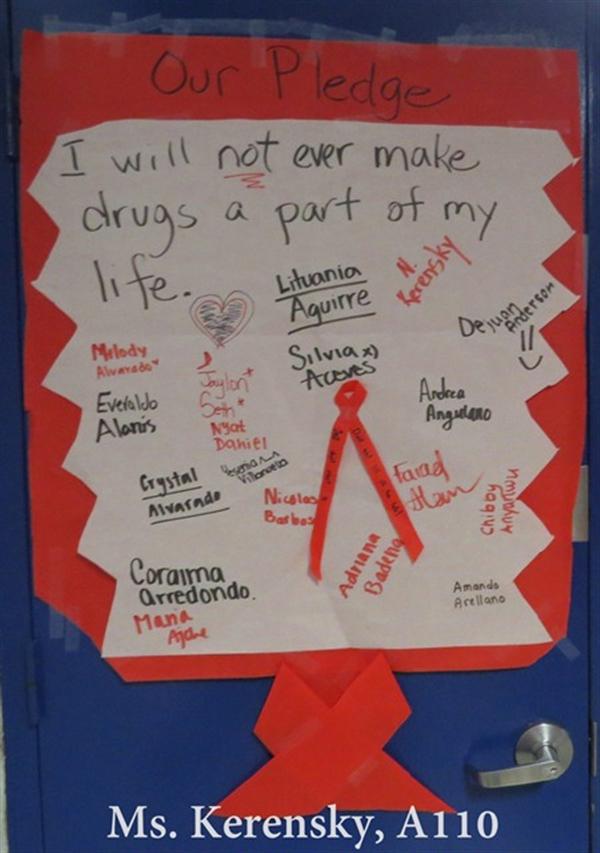 Our Pledge
I will not ever make
drugs a part of my
life.
Lituania
Aguirre
N.
Kerensky
Dejuan
Anderson
Melody
Alvarado
Silvia x)
Aceves
Jaylon*
Seth*
Nyat
Daniel
Everaldo
Alanis
Andrea
Anguiano
Yesenia
Villanueva
Crystal
Alvarado
Nicolas
Barbosa
Chibby
Anyanwu
Adriana
Badena
Coraima
arredondo.
Maria
Amanda
Arellano
Ms. Kerensky, A110